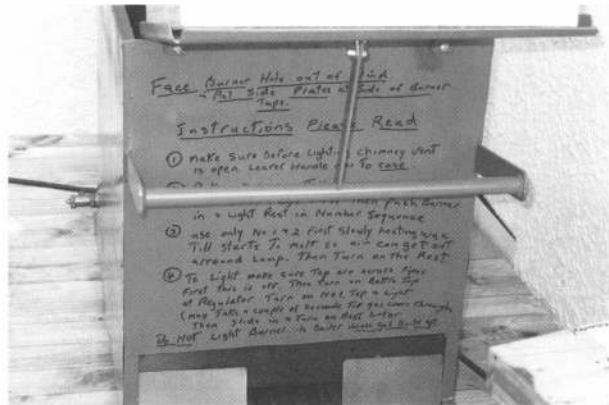 Face Burner Hole out of Wind
Put Side Plates at Side of Burner
Taps.
Instructions Please Read
① make Sure before Lighting chimney vent
is open Leaver Handle To
Then Push Burner
in & Light Rest in Number Sequence
③ use only No 1 & 2 First Slowly heating wax
Till starts To melt so air can get out
arround Lump. Then Turn on the Rest
④ To Light make sure Tap are across Pipes
First This is off. Then Turn on Bottle Tap
at Regulator Turn on No 1 Tap & Light
(may Take a couple of Seconds Till gas comes through
Then Slide in & Turn on Rest Later
Do Not Light Burner in Boiler gas Build up